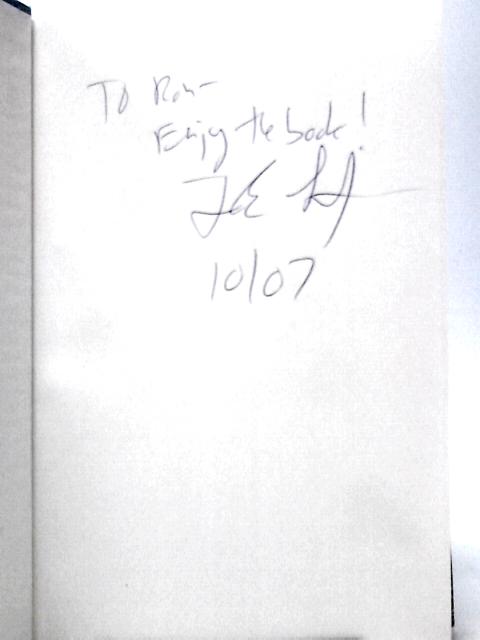 To Ron-
Enjoy the book!
Joe
10/07